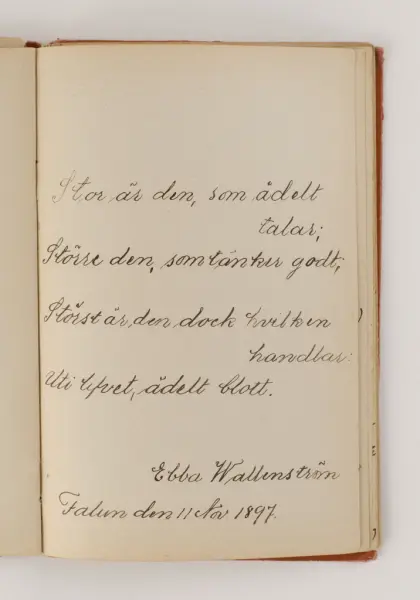 Stor är den, som ädelt
talar;
Större den, som tänker godt;
Störst är den dock hvilken
handlar:
Uti lifvet, ädelt blott.
Ebba Wallenström
Falun den 11 Nov 1897.